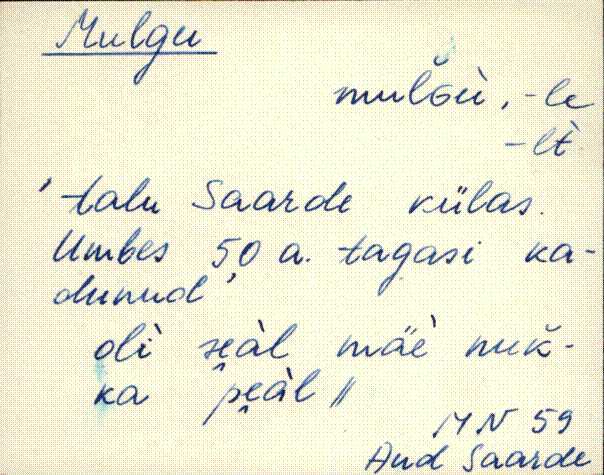 Mulgu
mulGù, -le
-lt̀
' talu Saarde külas.
Umbes 50 a. tagasi ka-
dunud'
olì se̯àl mäè nuk̆-
ka pe̯àl ||
MN 59
And Saarde